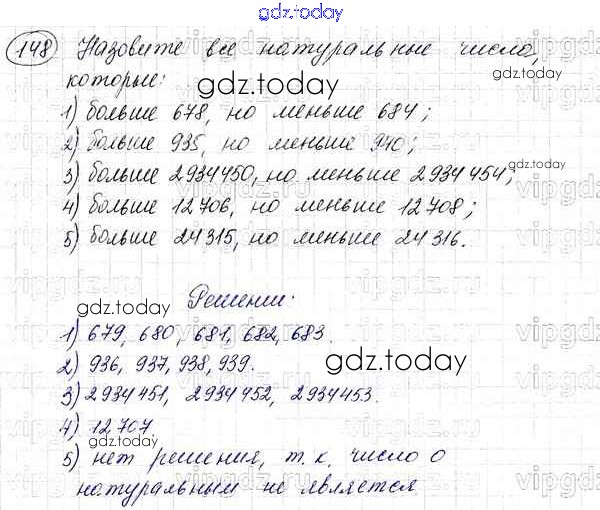 gdz.today
148 Назовите все натуральные число,
которые: gdz.today gdz.today
1) больше 678, но меньше 684;
2) больше 935, но меньше 940; gdz.today
3) больше 2934450, но меньше 2934454;
4) больше 12706, но меньше 12708; gdz.today
5) больше 24315, но меньше 24316.
gdz.today Решении:
1) 679, 680, 681, 682, 683.
2) 936, 937, 938, 939. gdz.today
3) 2934451, 2934452, 2934453.
4) 12707
gdz.today
5) нет решения, т.к. число 0 gdz.today
натуральным не является